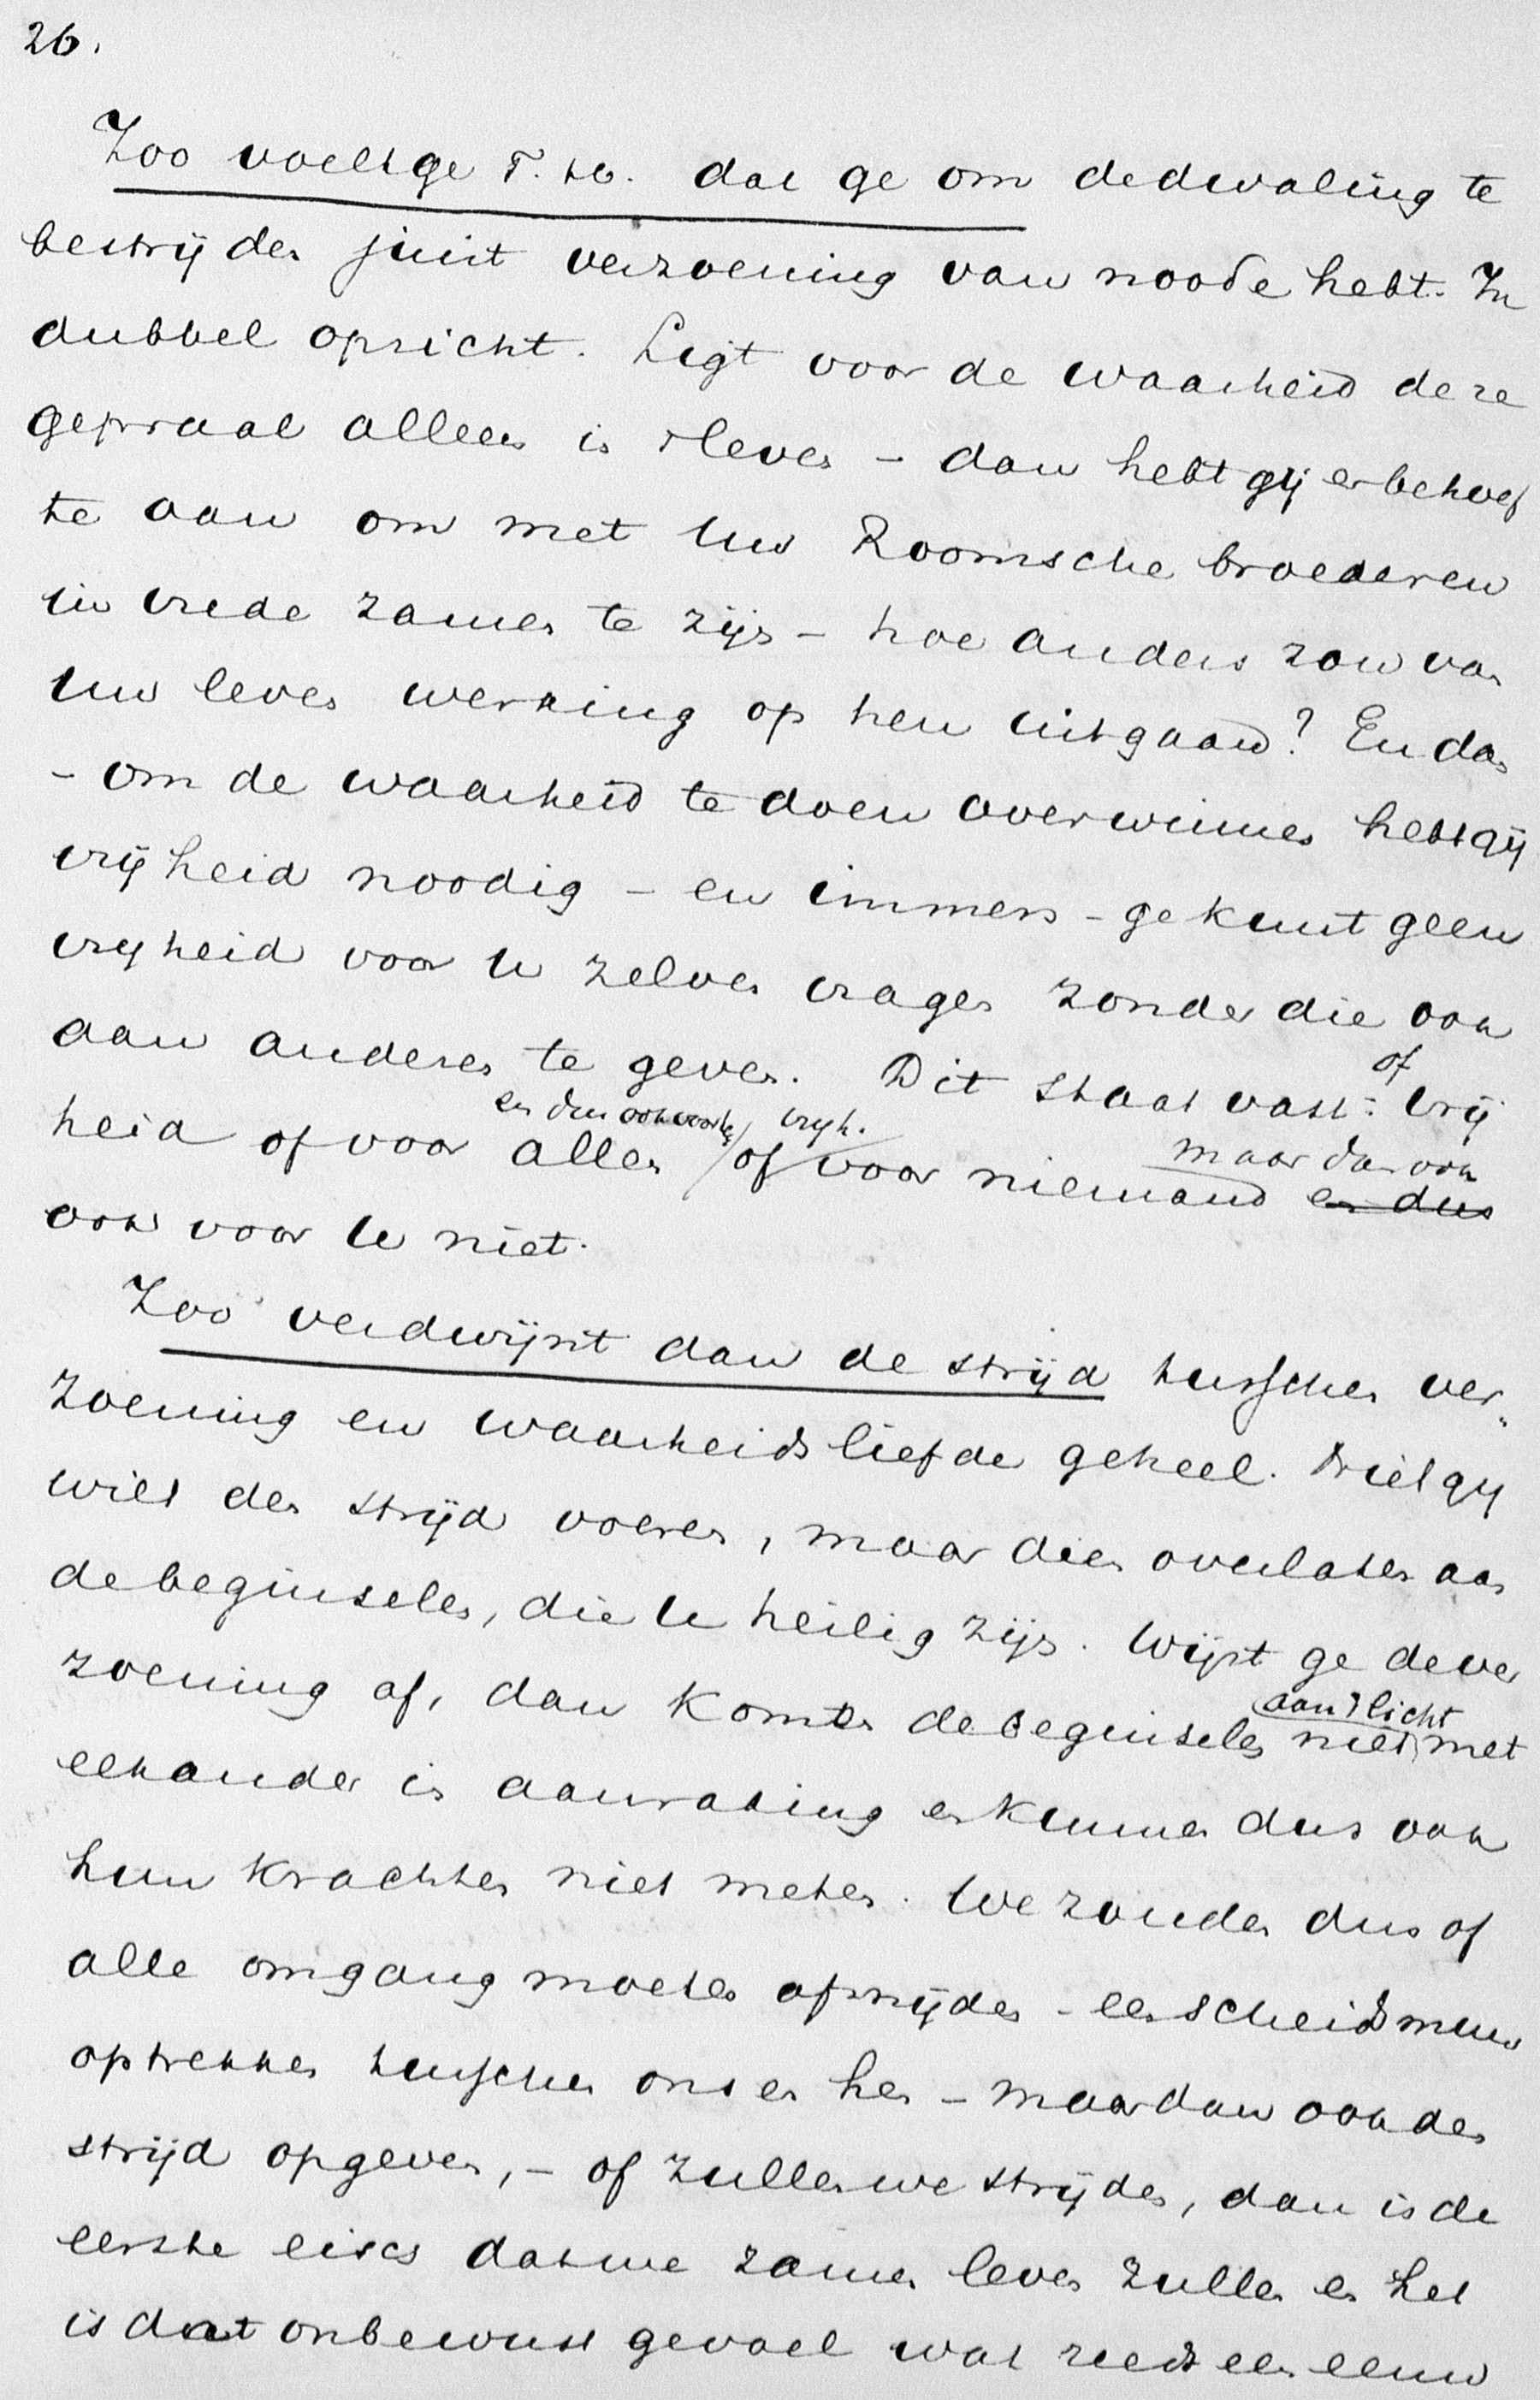 26.
Zoo voelt ge T. H. dat ge om de dwaling te
bestrijden juist verzoening van noode hebt. In
dubbel opzicht. Ligt voor de waarheid de ze
gepraal alleen in 't leven – dan hebt gij er behoef
te aan om met uw Roomsche broederen
in vrede zamen te zijn – hoe anders zou van
uw leven werking op hen uitgaan? En dan
– om de waarheid te doen overwinnen hebt gij
vrijheid noodig – en immers – ge kunt geen
vrijheid voor u zelven vragen zonder die ook
aan anderen te geven. Dit staat vast: of vrij
heid of voor allen en dus ook voor u, of vrijh. voor niemand en dus maar dan ook
ook voor u niet.
Zoo verdwijnt dan de strijd tusschen ver„
zoening en waarheidsliefde geheel. Niet gij
wilt den strijd voeren, maar dien overlaten aan
de beginselen, die u heilig zijn. Wijst ge de ver
zoening af, dan komen de beginselen niet aan 't licht met
elkander in aanraking en kunnen dus ook
hun krachten niet meten. We zouden dus of
alle omgang moeten afsnijden – een scheidsmuur
optrekken tusschen ons en hen – maar dan ook den
strijd opgeven, – of zullen we strijden, dan is de
eerste eisch dat we zamen leven zullen en het
is dat onbewust gevoel wat reeds een eeuw